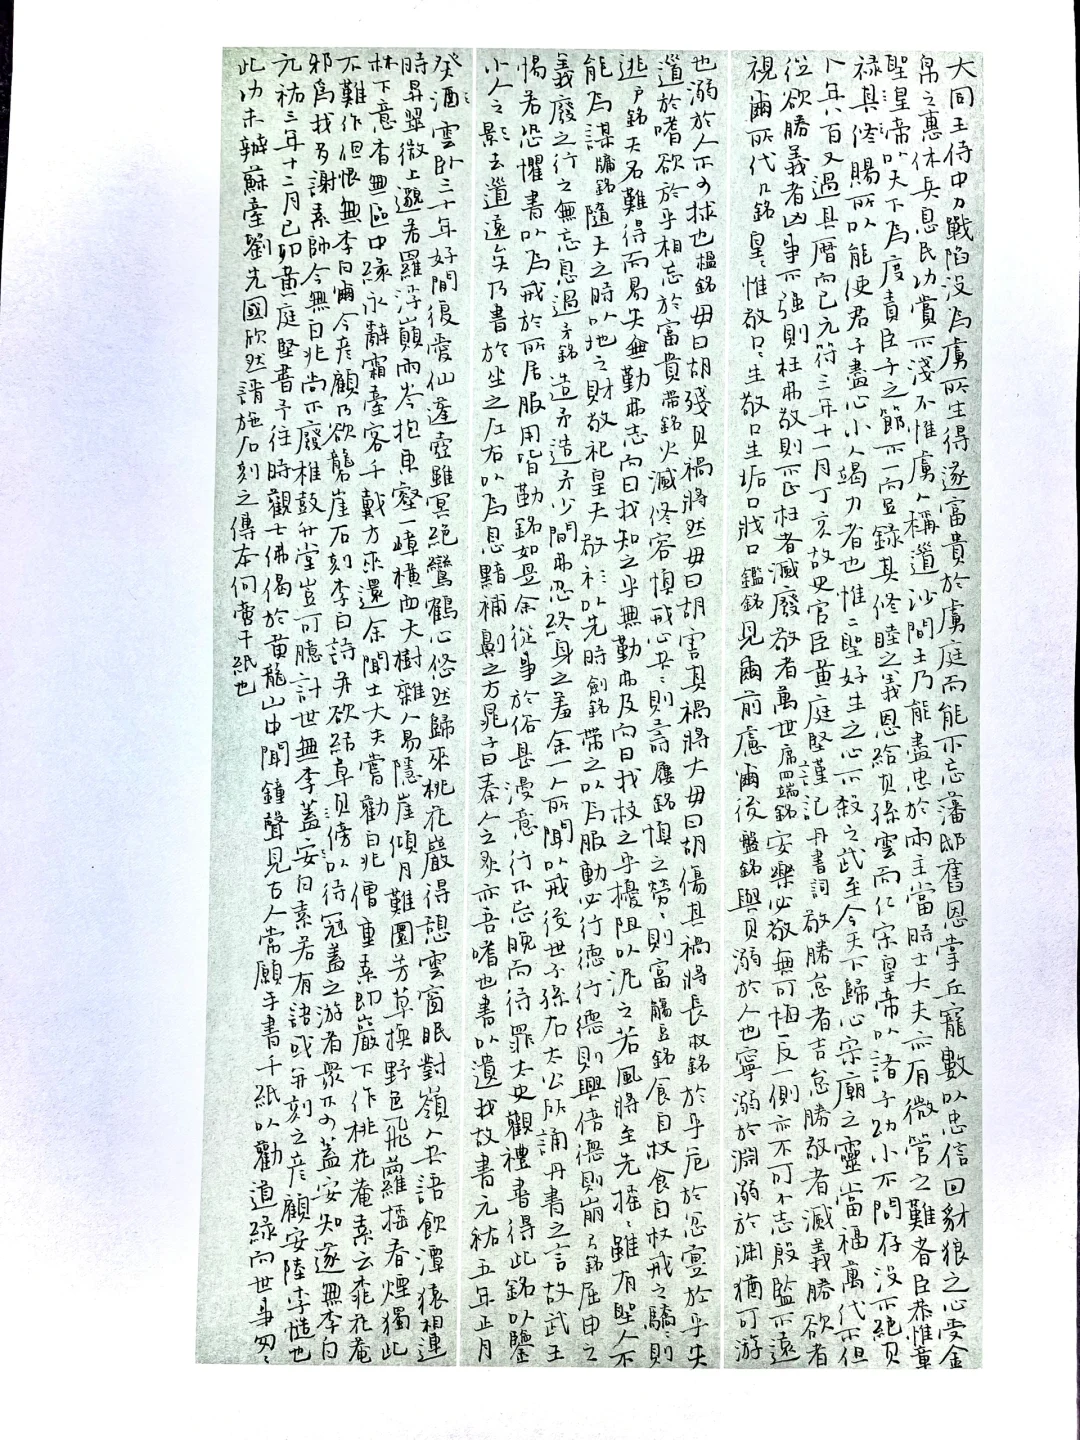 大同王侍中力戰陷没為虜所生得遂富貴於虜庭而能不忘藩邸舊恩掌丘寵數以忠信回豺狼之心受金
帛之惠休兵息民功賞不淺不惟虜人稱道沙間王乃能盡忠於兩主當時士大夫亦有微管之難者臣恭惟章
聖皇帝以天下為度責臣子之節不一而足錄其修睦之義恩給其孫雲而仁宗皇帝以諸子幼小不問存没不絕其
祿其修賜所以能使君子盡心小人竭力者也惟二聖好生之心不殺之武至今天下歸心宗廟之靈當福萬代不但
卜年八百又過其曆而已元符三年十一月丁亥故史官臣黄庭堅謹記丹書詞敬勝怠者吉怠勝敬者滅義勝欲者
從欲勝義者凶事不强則枉弗敬則不正枉者滅廢敬者萬世席四端銘安樂必敬無可悔一反一側亦不可不志殷監不遠
視爾所代几銘皇皇惟敬口口生敬口生垢口戕口鑑銘見爾前慮爾後盤銘與其溺於人也寧溺於淵溺於淵猶可游
也溺於人不可捄也楹銘毋曰胡殘其禍將然毋曰胡害其禍將大毋曰胡傷其禍將長杖銘於乎危於忿疐於乎失
道於嗜欲於乎相忘於富貴帶銘火滅修容慎戒必共共則壽屨銘慎之勞勞則富觴豆銘食自杖食自杖戒之驕驕則
逃戶銘夫名難得而易失無勤弗志而曰我知之乎無勤弗及而曰我杖之乎擾阻以泥之若風將至先搖搖雖有聖人不
能為謀牖銘隨天之時以地之財敬祀皇天敬以先時劍銘帶之以為服動必行德行德則興倍德則崩弓銘屈申之
義廢之行之無忘息過矛銘造矛造矛少間弗忍終身之羞余一人所聞以戒後世子孫右太公所誦丹書之言故武王
惕若恐懼書以為戒於所居服用皆勒銘如是余從事於俗甚漫意行不忘晚而待罪太史觀禮書得此銘以鑒
小人之影去道遠矣乃書於坐之左右以為息黥補劓之方晁子曰秦人之炙亦吾嗜也書以遺我故書元祐五年正月
癸酒雲卧三十年好閒復愛仙蓬壺雖冥絕鸞鶴心悠然歸來桃花巖得憩雲窗眠對嶺人共語飲潭猿相連
時昇翠微上邈若羅浮巔兩岑抱東壑一嶂橫西天樹雜人易隱崖傾月難圓芳草換野色飛蘿搖春煙獨此
林下意杳無區中緣永辭霜臺客千載方來還余聞士大夫嘗勸白兆僧重素即巖下作桃花菴素云桃花菴
不難作但恨無李白爾今彦顧乃欲礱崖石刻李白詩并欲結草其傍以待冠蓋之游者衆不可蓋安知遂無李白
邪為我多謝素師今無白兆尚不廢椎鼓升堂豈可臆計世無李蓋安白素若有語或并刻之彦顧安陸李慥也
元祐三年十二月己卯黄庭堅書予往時觀士佛偈於黄龍山中聞鐘聲見古人常願手書千紙以勸道緣而世事匆匆
此功未辦蘇臺劉光國欣然請施石刻之傳本何啻千紙也